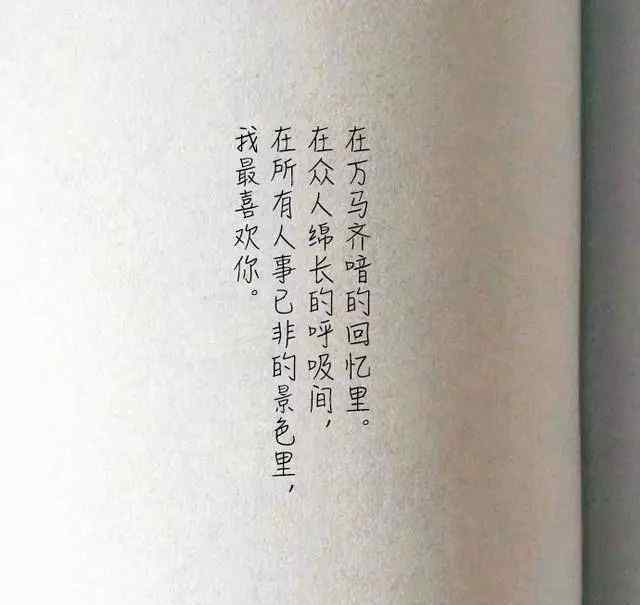 在万马齐喑的回忆里。
在众人绵长的呼吸间，
在所有人事已非的景色里，
我最喜欢你。